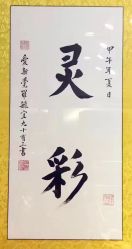 甲午年夏日
灵彩
爱新觉罗毓宝九十有三书